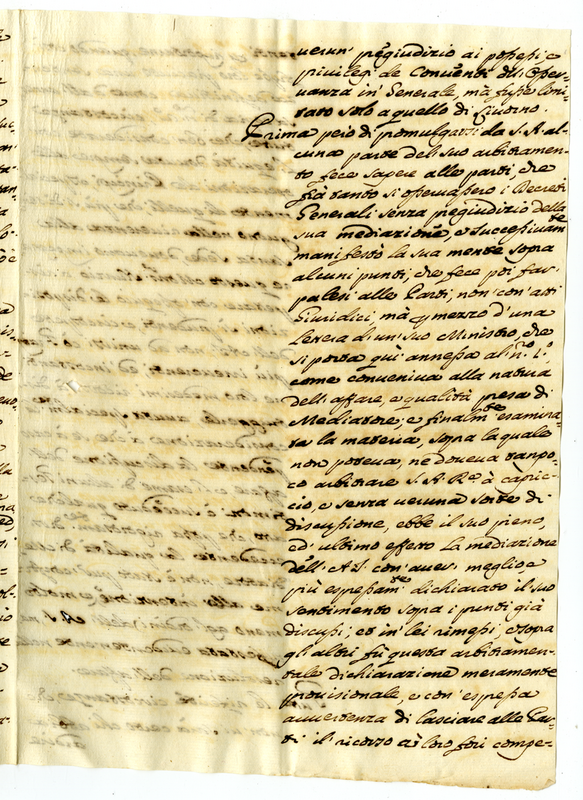 uerun' pregiudizio ai possessi, e
priuilegi de Conuenti dell'Osser-
uanza in' Generale, mà fusse limi-
tato solo a quello di Liuorno.
Prima però di promulgarsi da S. A. al-
cuna parte del suo arbitramen-
to fece sapere alle parti, che
frà tanto si osseruassero i Decreti
Generali senza pregiudizio della
sua mediazione, e successiuamte
manifestò la sua mente sopra
alcuni punti, che fece poi far
palesi alle Parti, non' con' atti
Giuridici, mà p mezzo d'una
Lettera d'un' suo Ministro, che
si porta quì annessa al n.º 1.º
come conueniua alla natura
dell'affare, e qualità presa di
Mediatore; e finalmte esamina-
ta la materia, sopra la quale
non poteua, ne doueua tanpo-
co arbitrare S. A. Rle à capric-
cio, e senza ueruna sorte di
discussione, ebbe il suo pieno,
ed' ultimo effetto la mediazione
dell'A. S. con' auer' meglio, e
più espressamte dichiarato il suo
sentimento sopra i punti già
discussi, et in' lei rimessi, e sopra
gli altri fù questa arbitramen-
tale dichiarazione meramente
prouisionale, e con' espressa
auuertenza di lasciare alle Par-
ti il ricorso a i loro fori compe-